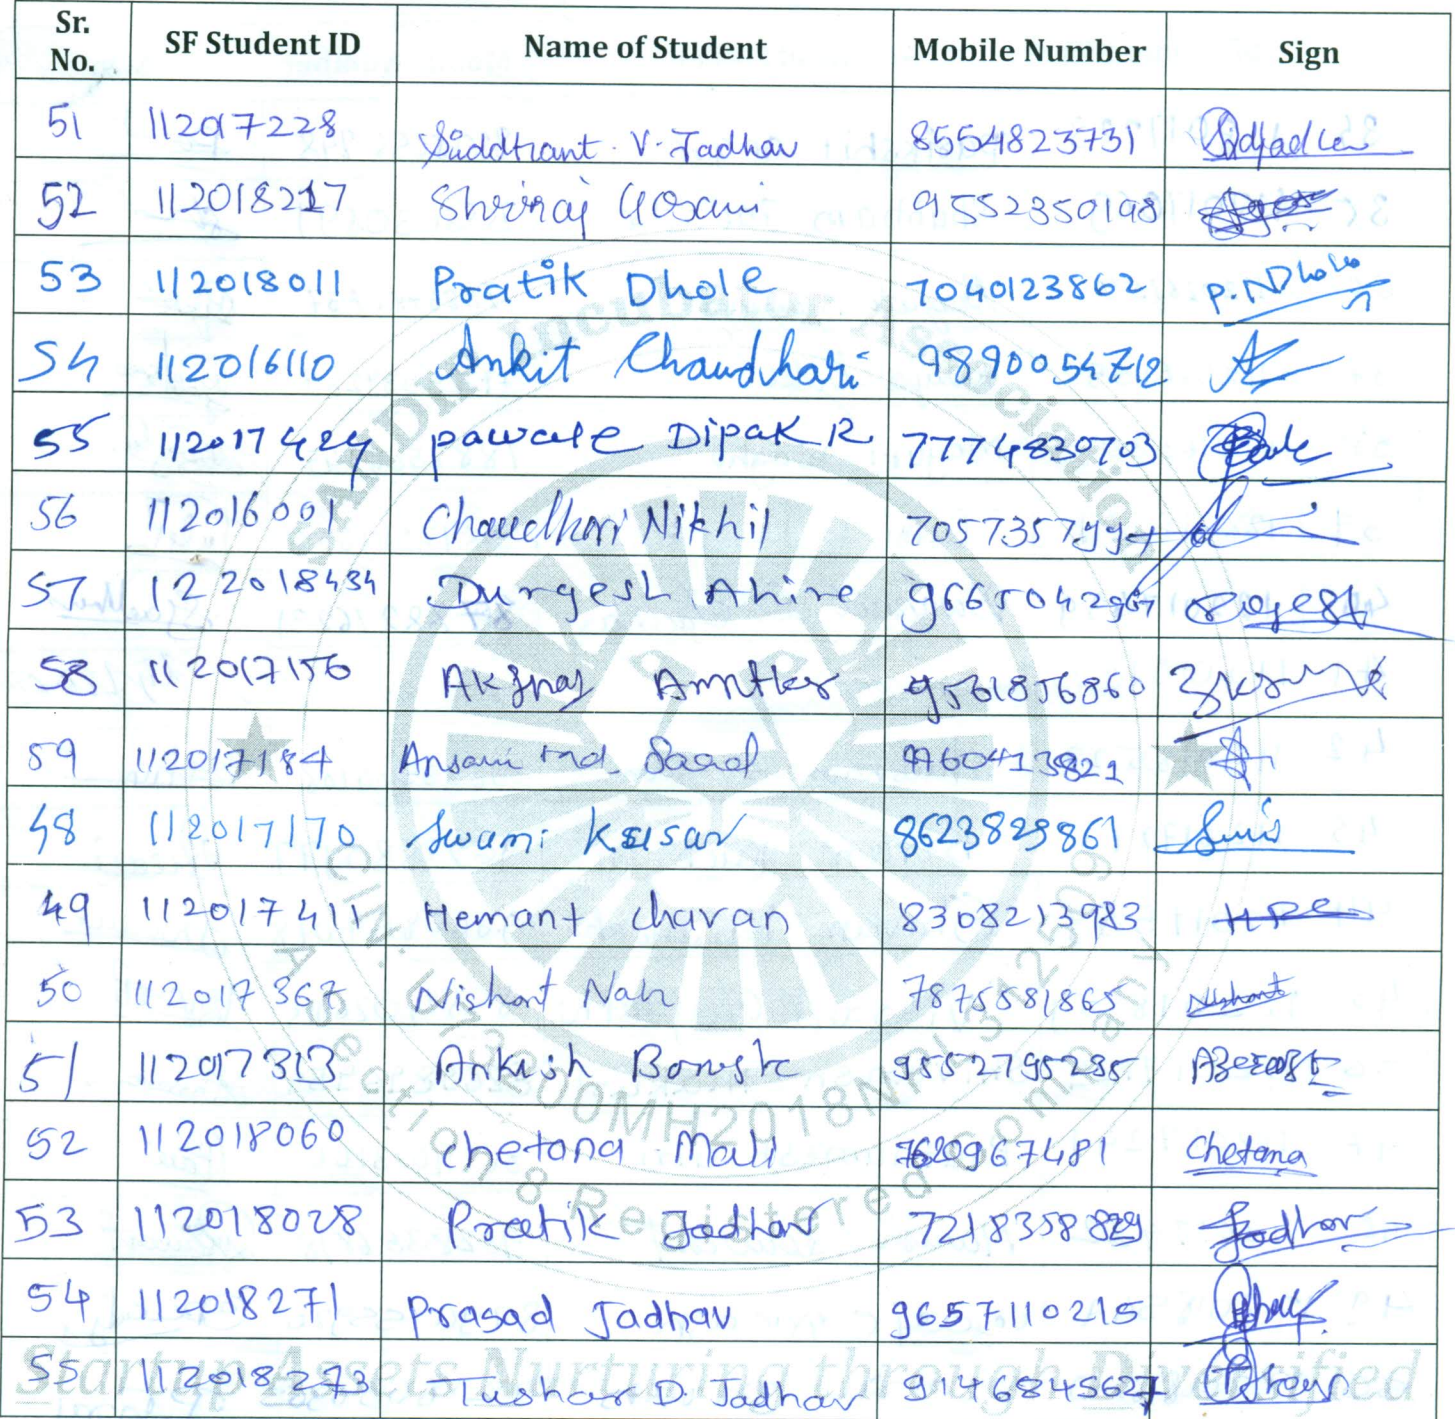 Sr. No. SF Student ID Name of Student Mobile Number Sign
51 112017228 Siddhant V. Jadhav 8554823731
52 112018217 Shriraj Gosavi 9552350198
53 112018011 Pratik Dhole 7040123862 P.N Dhole
54 112016110 Ankit Chaudhari 9890054712
55 112017424 Pawale Dipak R 7774830703
56 112016001 Chaudhari Nikhil
57 122018434 Durgesh Ahire
58 112017156 Akshay 9561856860
59 112017184 Ansari Md. Saad
48 112017170 Swami Kesar 8623829861
49 112017411 Hemant Chavan 8308213983
50 112017367 Nishant 7875581865 Nishant
51 112017313 Ankush 9552795285
52 112018060 Chetana Mali 7620967481 Chetana
53 112018028 Pratik Jadhav 7218358829 Jadhav
54 112018271 Prasad Jadhav 9657110215
55 112018273 Tushar D Jadhav 9146845627
SANDIP Incubator Association
CIN: U73200MH2018NPL312509
A Section 8 Registered Company
Startup Assets Nurturing through Diversified